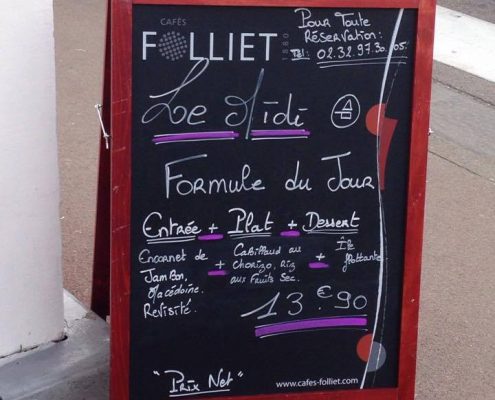 CAFÉS
FOLLIET
1880
Pour Toute
Réservation:
Tél: 02.32.97.30.05.
Le Midi
Formule du Jour
Entrée + Plat + Dessert
Encornet de
Jambon,
Macédoine.
Revisité.
+
Cabillaud au
Chorizo, Riz
aux Fruits Sec.
+
Île
flottante
13.€90
"Prix Net"
www.cafes-folliet.com